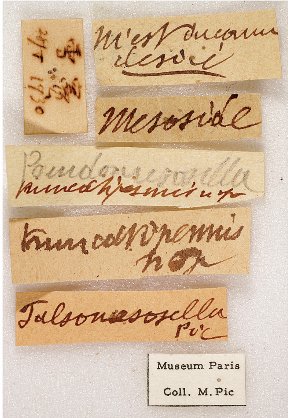 m'est inconnu
Mesoside
Pseudomesosella
truncatipennis n sp
truncatipennis
n sp
Falsomesosella
Pic
Museum Paris
Coll. M. Pic